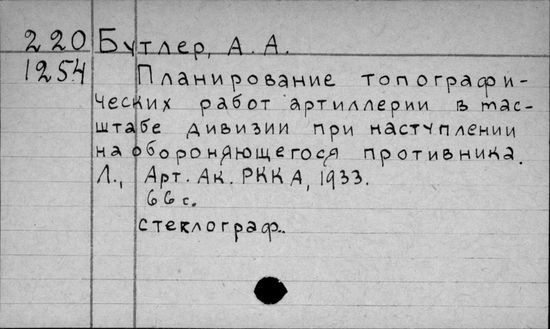 220 Бутлер, А. А.
1254 Планирование топографи-
ческих работ артиллерии в мас-
штабе дивизии при наступлении
на обороняющегося противника.
Л., Арт. Ак. РККА, 1933.
66 с.
стеклограф..